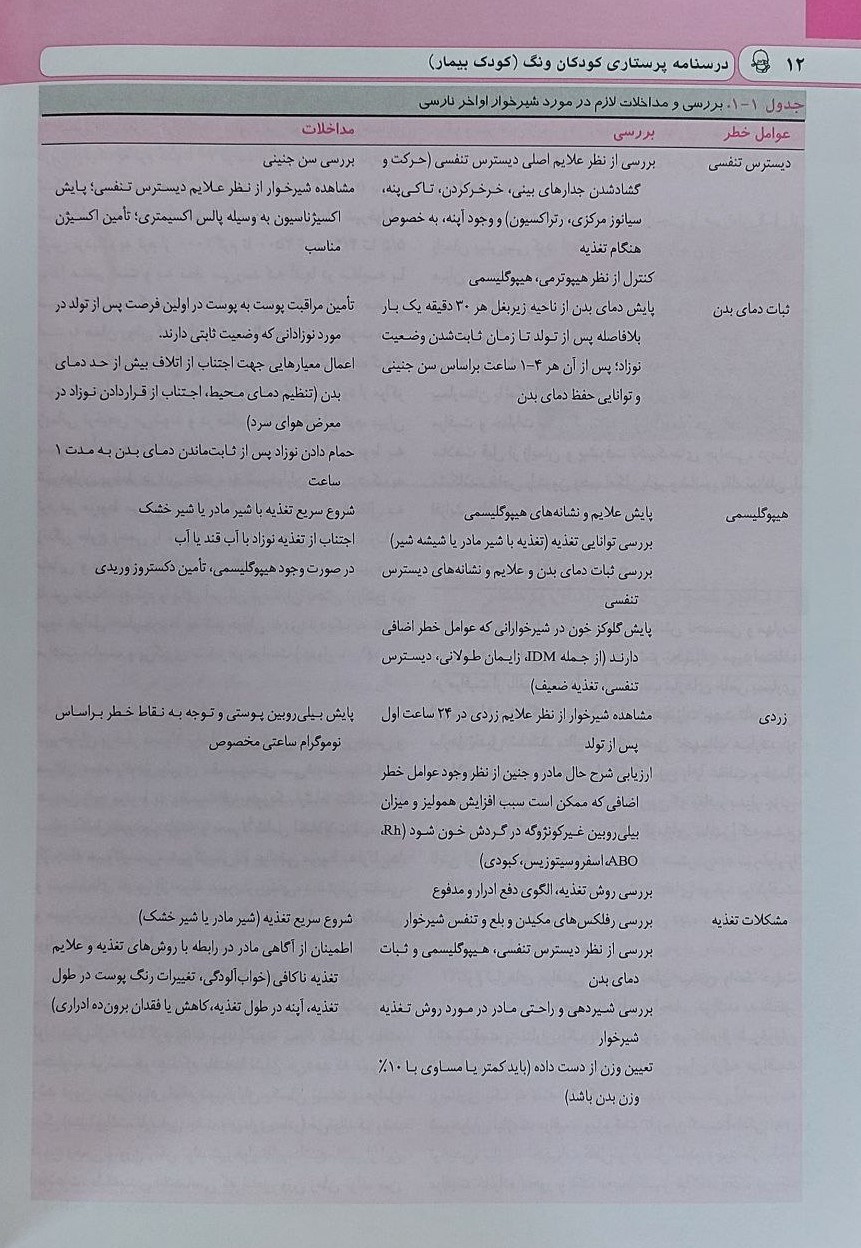 ۱۲ درسنامه پرستاری کودکان ونگ (کودک بیمار)
جدول ۱-۱. بررسی و مداخلات لازم در مورد شیرخوار اواخر نارسی
عوامل خطر
بررسی
مداخلات
دیسترس تنفسی
بررسی از نظر علایم اصلی دیسترس تنفسی (حرکت و
گشادشدن جدارهای بینی، خرخرکردن، تاکی‌پنه،
سیانوز مرکزی، رتراکسیون) و وجود آپنه، به خصوص
هنگام تغذیه
کنترل از نظر هیپوترمی، هیپوگلیسمی
بررسی سن جنینی
مشاهده شیرخوار از نظر علایم دیسترس تنفسی؛ پایش
اکسیژناسیون به وسیله پالس اکسیمتری؛ تأمین اکسیژن
مناسب
ثبات دمای بدن
پایش دمای بدن از ناحیه زیربغل هر ۳۰ دقیقه یک بار
بلافاصله پس از تولد تا زمان ثابت‌شدن وضعیت
نوزاد؛ پس از آن هر ۴-۱ ساعت براساس سن جنینی
و توانایی حفظ دمای بدن
تأمین مراقبت پوست به پوست در اولین فرصت پس از تولد در
مورد نوزادانی که وضعیت ثابتی دارند.
اعمال معیارهایی جهت اجتناب از اتلاف بیش از حد دمای
بدن (تنظیم دمای محیط، اجتناب از قراردادن نوزاد در
معرض هوای سرد)
حمام دادن نوزاد پس از ثابت‌ماندن دمای بدن به مدت ۱
ساعت
هیپوگلیسمی
پایش علایم و نشانه‌های هیپوگلیسمی
بررسی توانایی تغذیه (تغذیه با شیر مادر یا شیشه شیر)
بررسی ثبات دمای بدن و علایم و نشانه‌های دیسترس
تنفسی
پایش گلوکز خون در شیرخوارانی که عوامل خطر اضافی
دارند (از جمله IDM، زایمان طولانی، دیسترس
تنفسی، تغذیه ضعیف)
شروع سریع تغذیه با شیر مادر یا شیر خشک
اجتناب از تغذیه نوزاد با آب قند یا آب
در صورت وجود هیپوگلیسمی، تأمین دکستروز وریدی
زردی
مشاهده شیرخوار از نظر علایم زردی در ۲۴ ساعت اول
پس از تولد
ارزیابی شرح حال مادر و جنین از نظر وجود عوامل خطر
اضافی که ممکن است سبب افزایش همولیز و میزان
بیلی‌روبین غیرکونژوگه در گردش خون شود (Rh،
ABO، اسفروسیتوزیس، کبودی)
بررسی روش تغذیه، الگوی دفع ادرار و مدفوع
پایش بیلی‌روبین پوستی و توجه به نقاط خطر براساس
نوموگرام ساعتی مخصوص
مشکلات تغذیه
بررسی رفلکس‌های مکیدن و بلع و تنفس شیرخوار
بررسی از نظر دیسترس تنفسی، هیپوگلیسمی و ثبات
دمای بدن
بررسی شیردهی و راحتی مادر در مورد روش تغذیه
شیرخوار
تعیین وزن از دست داده (باید کمتر یا مساوی با ۱۰٪
وزن بدن باشد)
شروع سریع تغذیه (شیر مادر یا شیر خشک)
اطمینان از آگاهی مادر در رابطه با روش‌های تغذیه و علایم
تغذیه ناکافی (خواب‌آلودگی، تغییرات رنگ پوست در طول
تغذیه، آپنه در طول تغذیه، کاهش یا فقدان برون‌ده ادراری)